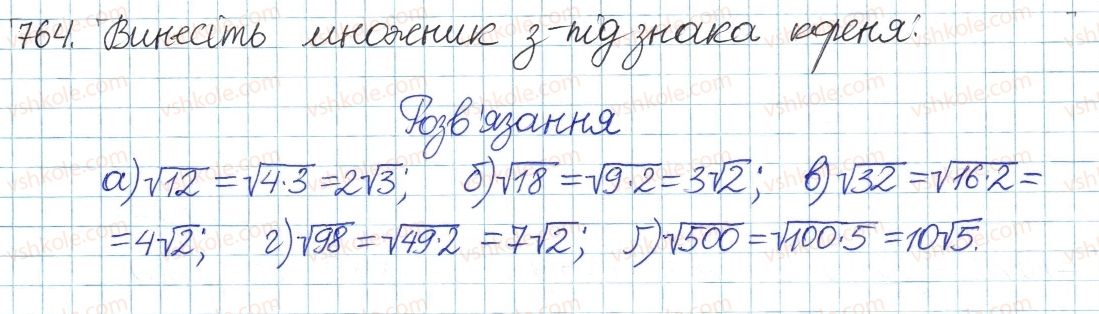 764. Винесіть множник з-під знака кореня:
Розв'язання
а) √12 = √4·3 = 2√3; б) √18 = √9·2 = 3√2; в) √32 = √16·2 =
= 4√2; г) √98 = √49·2 = 7√2; ґ) √500 = √100·5 = 10√5.